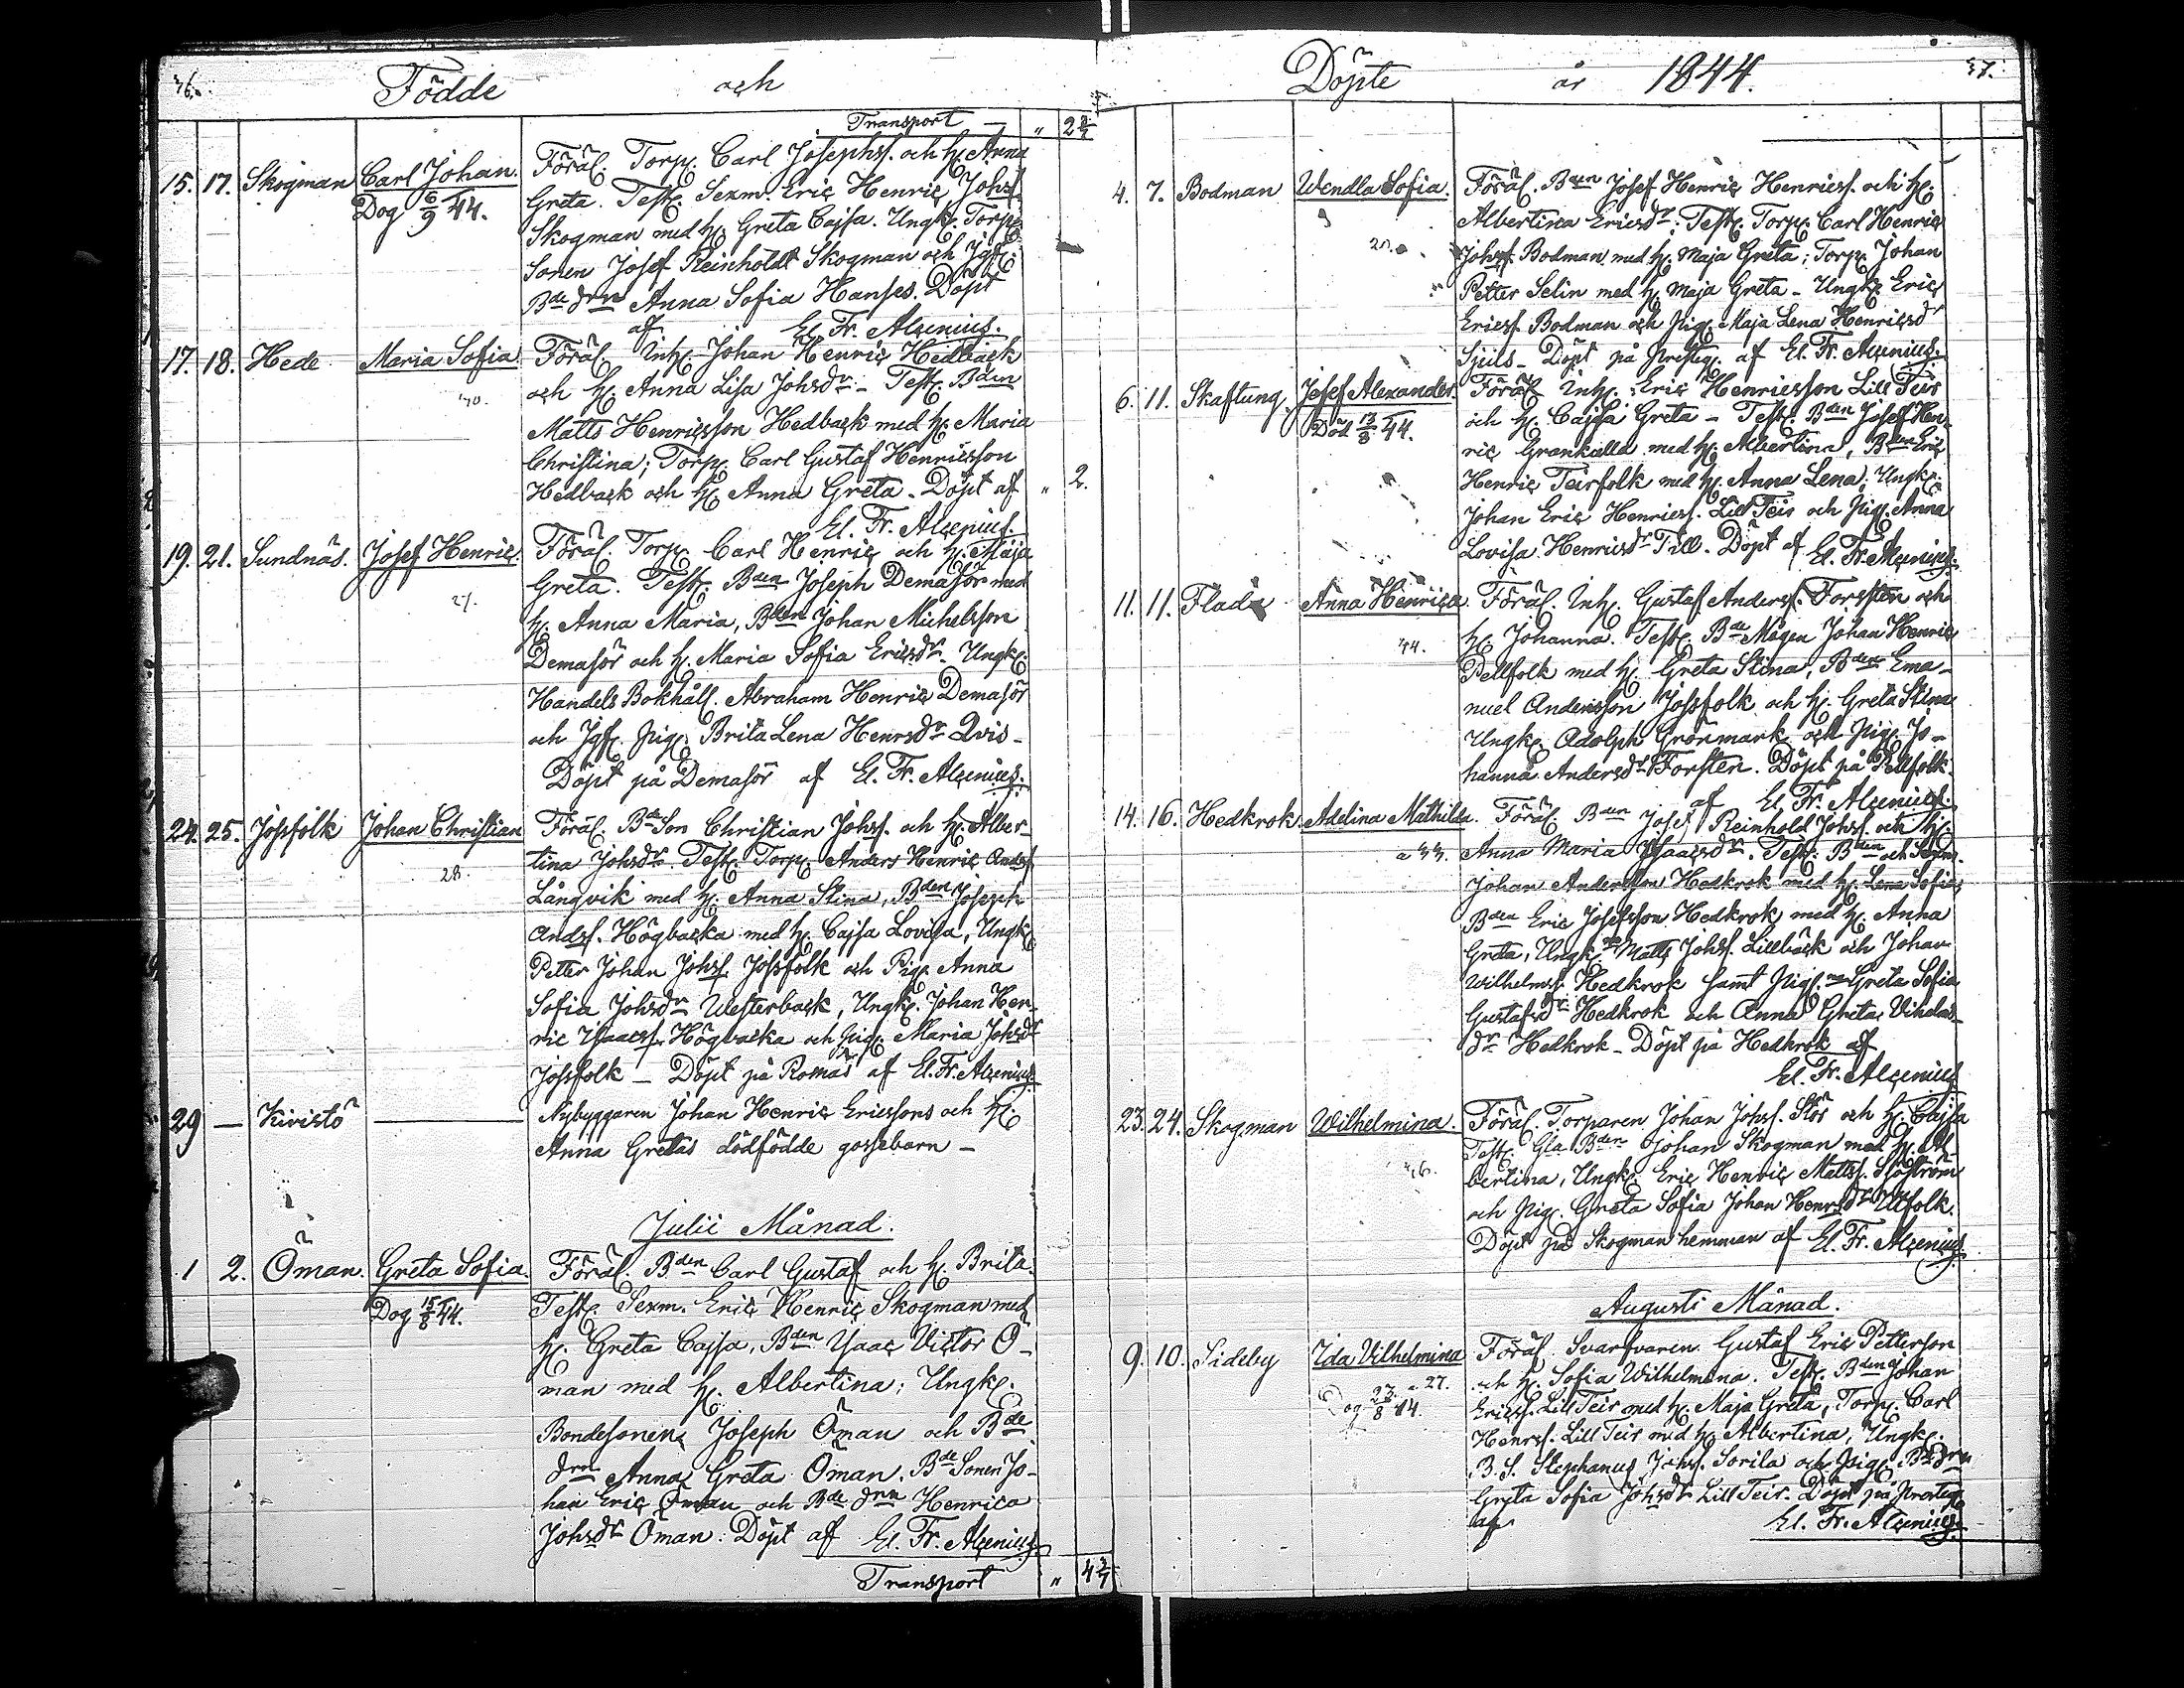 36.
Födde och
Transport — " 2 2/7
15. 17. Skogman Carl Johan. Föräl. Torp. Carl Josephs. och H. Anna
Dog 6/9 44. Greta. Test. Sexm. Eric Henric Johs.
Skogman med h. Greta Cajsa. Ungk. Torp.
Sonen Josef Reinholdt Skogman och Jgf.
Bde drn Anna Sofia Hanses. Döpt
af El. Fr. Alcenius.
17. 18. Hede Maria Sofia Föräl. Inh. Johan Henric Hedback
och h. Anna Lisa Johsdr. - Test. Bden
Matts Henricsson Hedback med h. Maria
Christina; Torp. Carl Gustaf Henricsson
Hedback och h. Anna Greta. Döpt af " 2.
El. Fr. Alcenius.
19. 21. Sundnäs. Josef Henric. Föräl. Torp. Carl Henric och h. Maja
27. Greta. Test. Bden Joseph Demasör med
h. Anna Maria, Bden Johan Michelsson
Demasör och h. Maria Sofia Ericsdr. Ungk.
Handels Bokhåll. Abraham Henric Demasör
och Jgf. Pig. Brita Lena Henrsdr Qvis-
Döpt på Demasör af El. Fr. Alcenius.
24. 25. Jossfolk Johan Christian Föräl. Bde Son Christian Johs. och h. Alber-
28. tina Johsdr. Test. Torp. Anders Henric Ands.
Långvik med h. Anna Stina, Bden Joseph
Ands. Högbacka med h. Cajsa Lovisa, Ungk.
Petter Johan Johs. Jossfolk och Pig. Anna
Sofia Johsdr Westerback, Ungk. Johan Hen-
ric Isaacs. Högbacka och Pig. Maria Johsdr
Jossfolk — Döpt på Romås af El. Fr. Alcenius
29 — Kivistö — Nybyggaren Johan Henric Ericssons och h.
Anna Gretas dödfödde gossebarn —
Julii Månad.
1 2. Öman. Greta Sofia. Föräl. Bden Carl Gustaf och h. Brita.
Dog 15/8 44. Test. Sexm. Eric Henric Skogman med
h. Greta Cajsa, Bden Isaac Victor Ö-
man med h. Albertina; Ungk.
Bondesonen Joseph Öman och Bde
drn Anna Greta Öman. Bde Sonen Jo-
han Eric Öman och Bde drn Henrica
Johsdr Öman. Döpt af El. Fr. Alcenius.
Transport " 4 2/7
Döpte år 1844. 37.
4. 7. Bodman Wendla Sofia. Föräl. Bden Josef Henric Henrics. och h.
Albertina Ericsdr; Test. Torp. Carl Henric
Johs. Bodman med h. Maja Greta; Torp. Johan
Petter Selin med h. Maja Greta - Ungk. Eric
Erics. Bodman och Pig. Maja Lena Henricsdr
Sjuls - Döpt på Presteg. af El. Fr. Alcenius.
6. 11. Skaftung Josef Alexander. Föräl. Inh. Eric Henricsson Lill Teir
Död 13/8 44. och h. Cajsa Greta - Test. Bden Josef Hen-
ric Grankulla med h. Albertina, Bden Eric
Henric Teirfolk med h. Anna Lena; Ungk.
Johan Eric Henrics. Lill Teir och Pig. Anna
Lovisa Henricsdr Till. Döpt af El. Fr. Alcenius.
11. 11. Flada Anna Henrica. Föräl. Inh. Gustaf Anders. Forssten och
44. h. Johanna. Test. Bde Mågen Johan Henric
Pellfolk med h. Greta Stina, Bden Ema-
nuel Andersson Jossfolk och h. Greta Stina
Ungk. Adolph Grönmark och Pig. Jo-
hanna Andersdr Forsten. Döpt på Pellfolk.
af El. Fr. Alcenius.
14. 16. Hedkrok. Adelina Mathilda. Föräl. Bden Josef Reinhold Johs. och h.
a 33. Anna Maria Isaacsdr. Test: Bden och Sexm.
Johan Andersson Hedkrok med h. Lena Sofia
Bden Eric Josefsson Hedkrok med h. Anna
Greta, Ungk. Matts Johs. Lillbäck och Johan
Wilhelms. Hedkrok samt Pig. Greta Sofia
Gustafsdr Hedkrok och Anna Greta Vihelms-
dr Hedkrok - Döpt på Hedkrok af
El. Fr. Alcenius
23. 24. Skogman Wilhelmina. Föräl. Torparen Johan Johs. Stor och h. Cajsa
36. Test. Gla Bden Johan Skogman med h. Al-
bertina, Ungk. Eric Henric Matts. Sjöström
och Pig. Greta Sofia Johan Henrsdr Ulfolk.
Döpt på Skogman hemman af El. Fr. Alcenius
Augusti Månad.
9. 10. Sideby Ida Vilhelmina Föräl. Svarfvaren Gustaf Eric Petterson
a 27. och h. Sofia Wilhelmina. Test. Bden Johan
Dog 23/8 44. Erics. Lill Teir med h. Maja Greta, Torp. Carl
Henrs. Lill Teir med h. Albertina, Ungk.
B. S. Stephanus Johs. Sorila och Pig. Bde drn
Greta Sofia Johsdr Lill Teir. Döpt på Presteg.
af El. Fr. Alcenius.